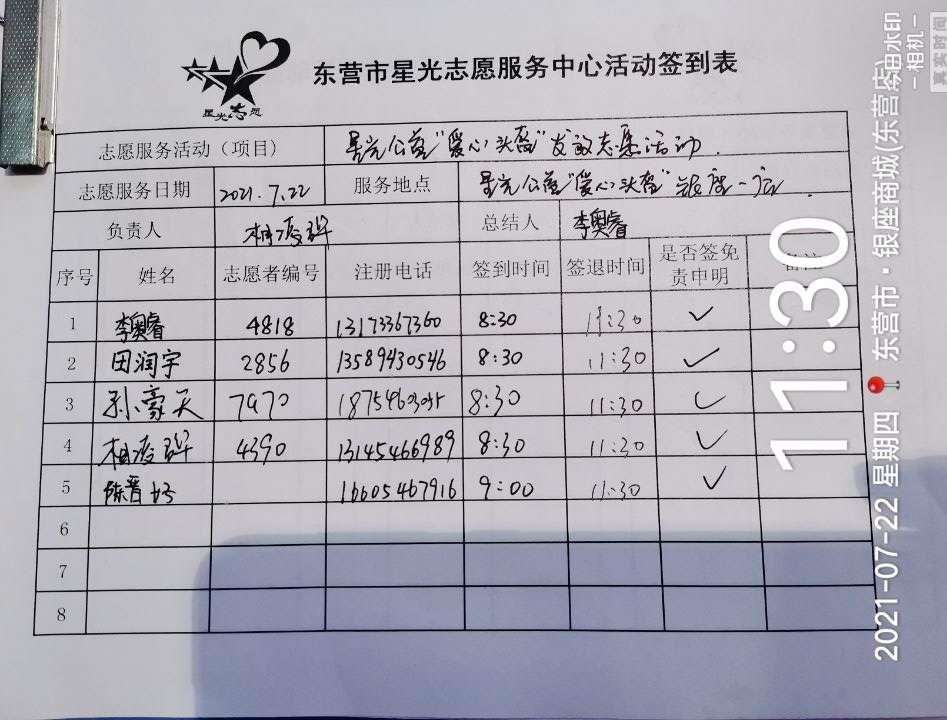 星光志愿
东营市星光志愿服务中心活动签到表
志愿服务活动（项目） 星光公益"爱心头盔"发放志愿活动.
志愿服务日期 2021.7.22 服务地点 星光公益"爱心头盔" 银座一店.
负责人 总结人 李奥睿
序号 姓名 志愿者编号 注册电话 签到时间 签退时间 是否签免责申明 备注
1 李奥睿 4818 13173367360 8:30 11:30 ✓
2 田润宇 2856 13589430546 8:30 11:30 ✓
3 孙豪天 7970 8:30 11:30 ✓
4 4390 13145466989 8:30 11:30 ✓
5 陈晋 16605467916 9:00 11:30 ✓
6
7
8
11:30
2021-07-22 星期四 东营市·银座商城(东营店)
今日水印
相机
真实时间